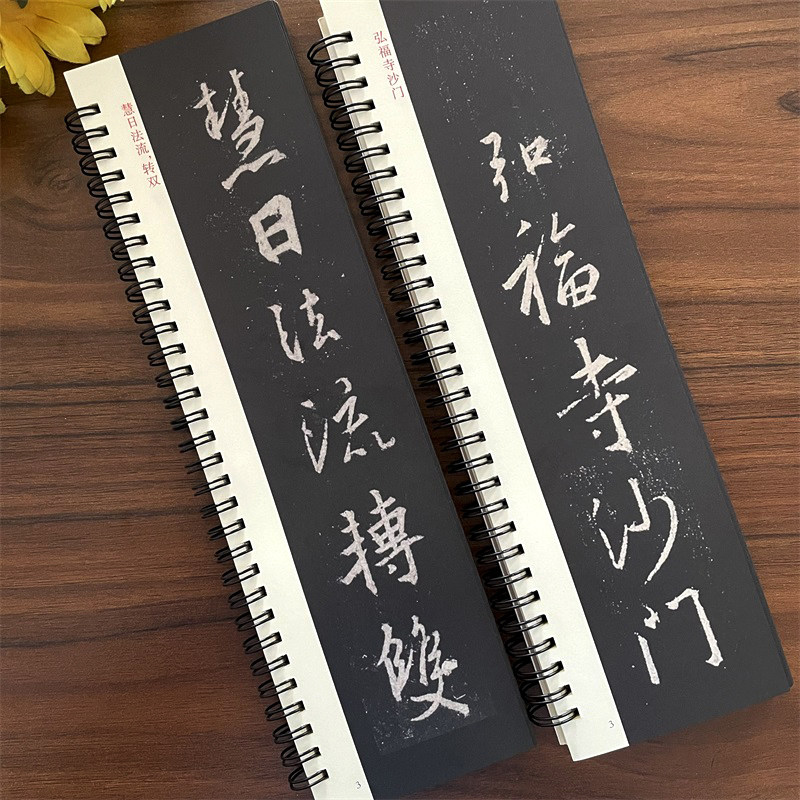 慧日法流,转双
慧日法流摶雙
3
弘福寺沙门
弘福寺沙门
3